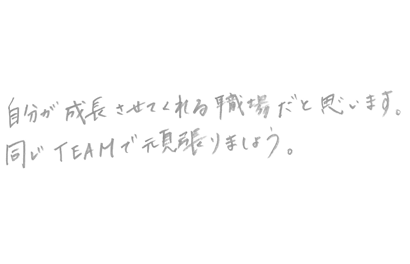 自分が成長させてくれる職場だと思います。
同じTEAMで頑張りましょう。